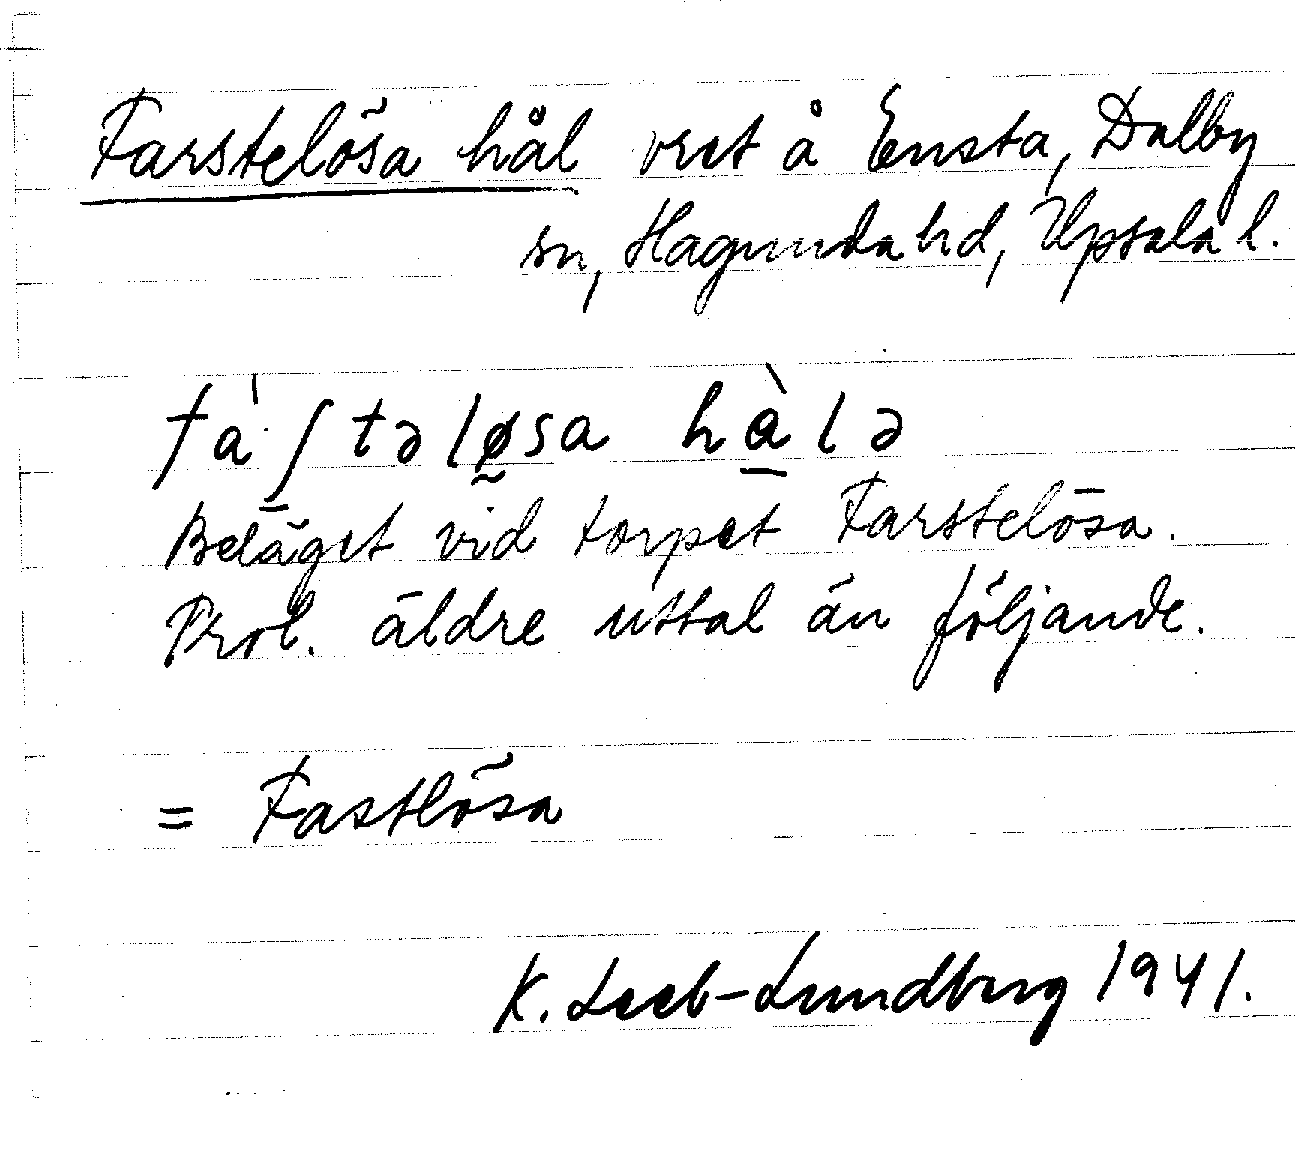 Farstelösa hål vret å Ensta, Dalby
sn, Hagunda hd, Upsala l.
fàʃtəlø̰sa hà̱lə
Beläget vid torpet Farstelösa.
Prob. äldre uttal än följande.
= Fastlösa
K. Leeb-Lundberg 1941.